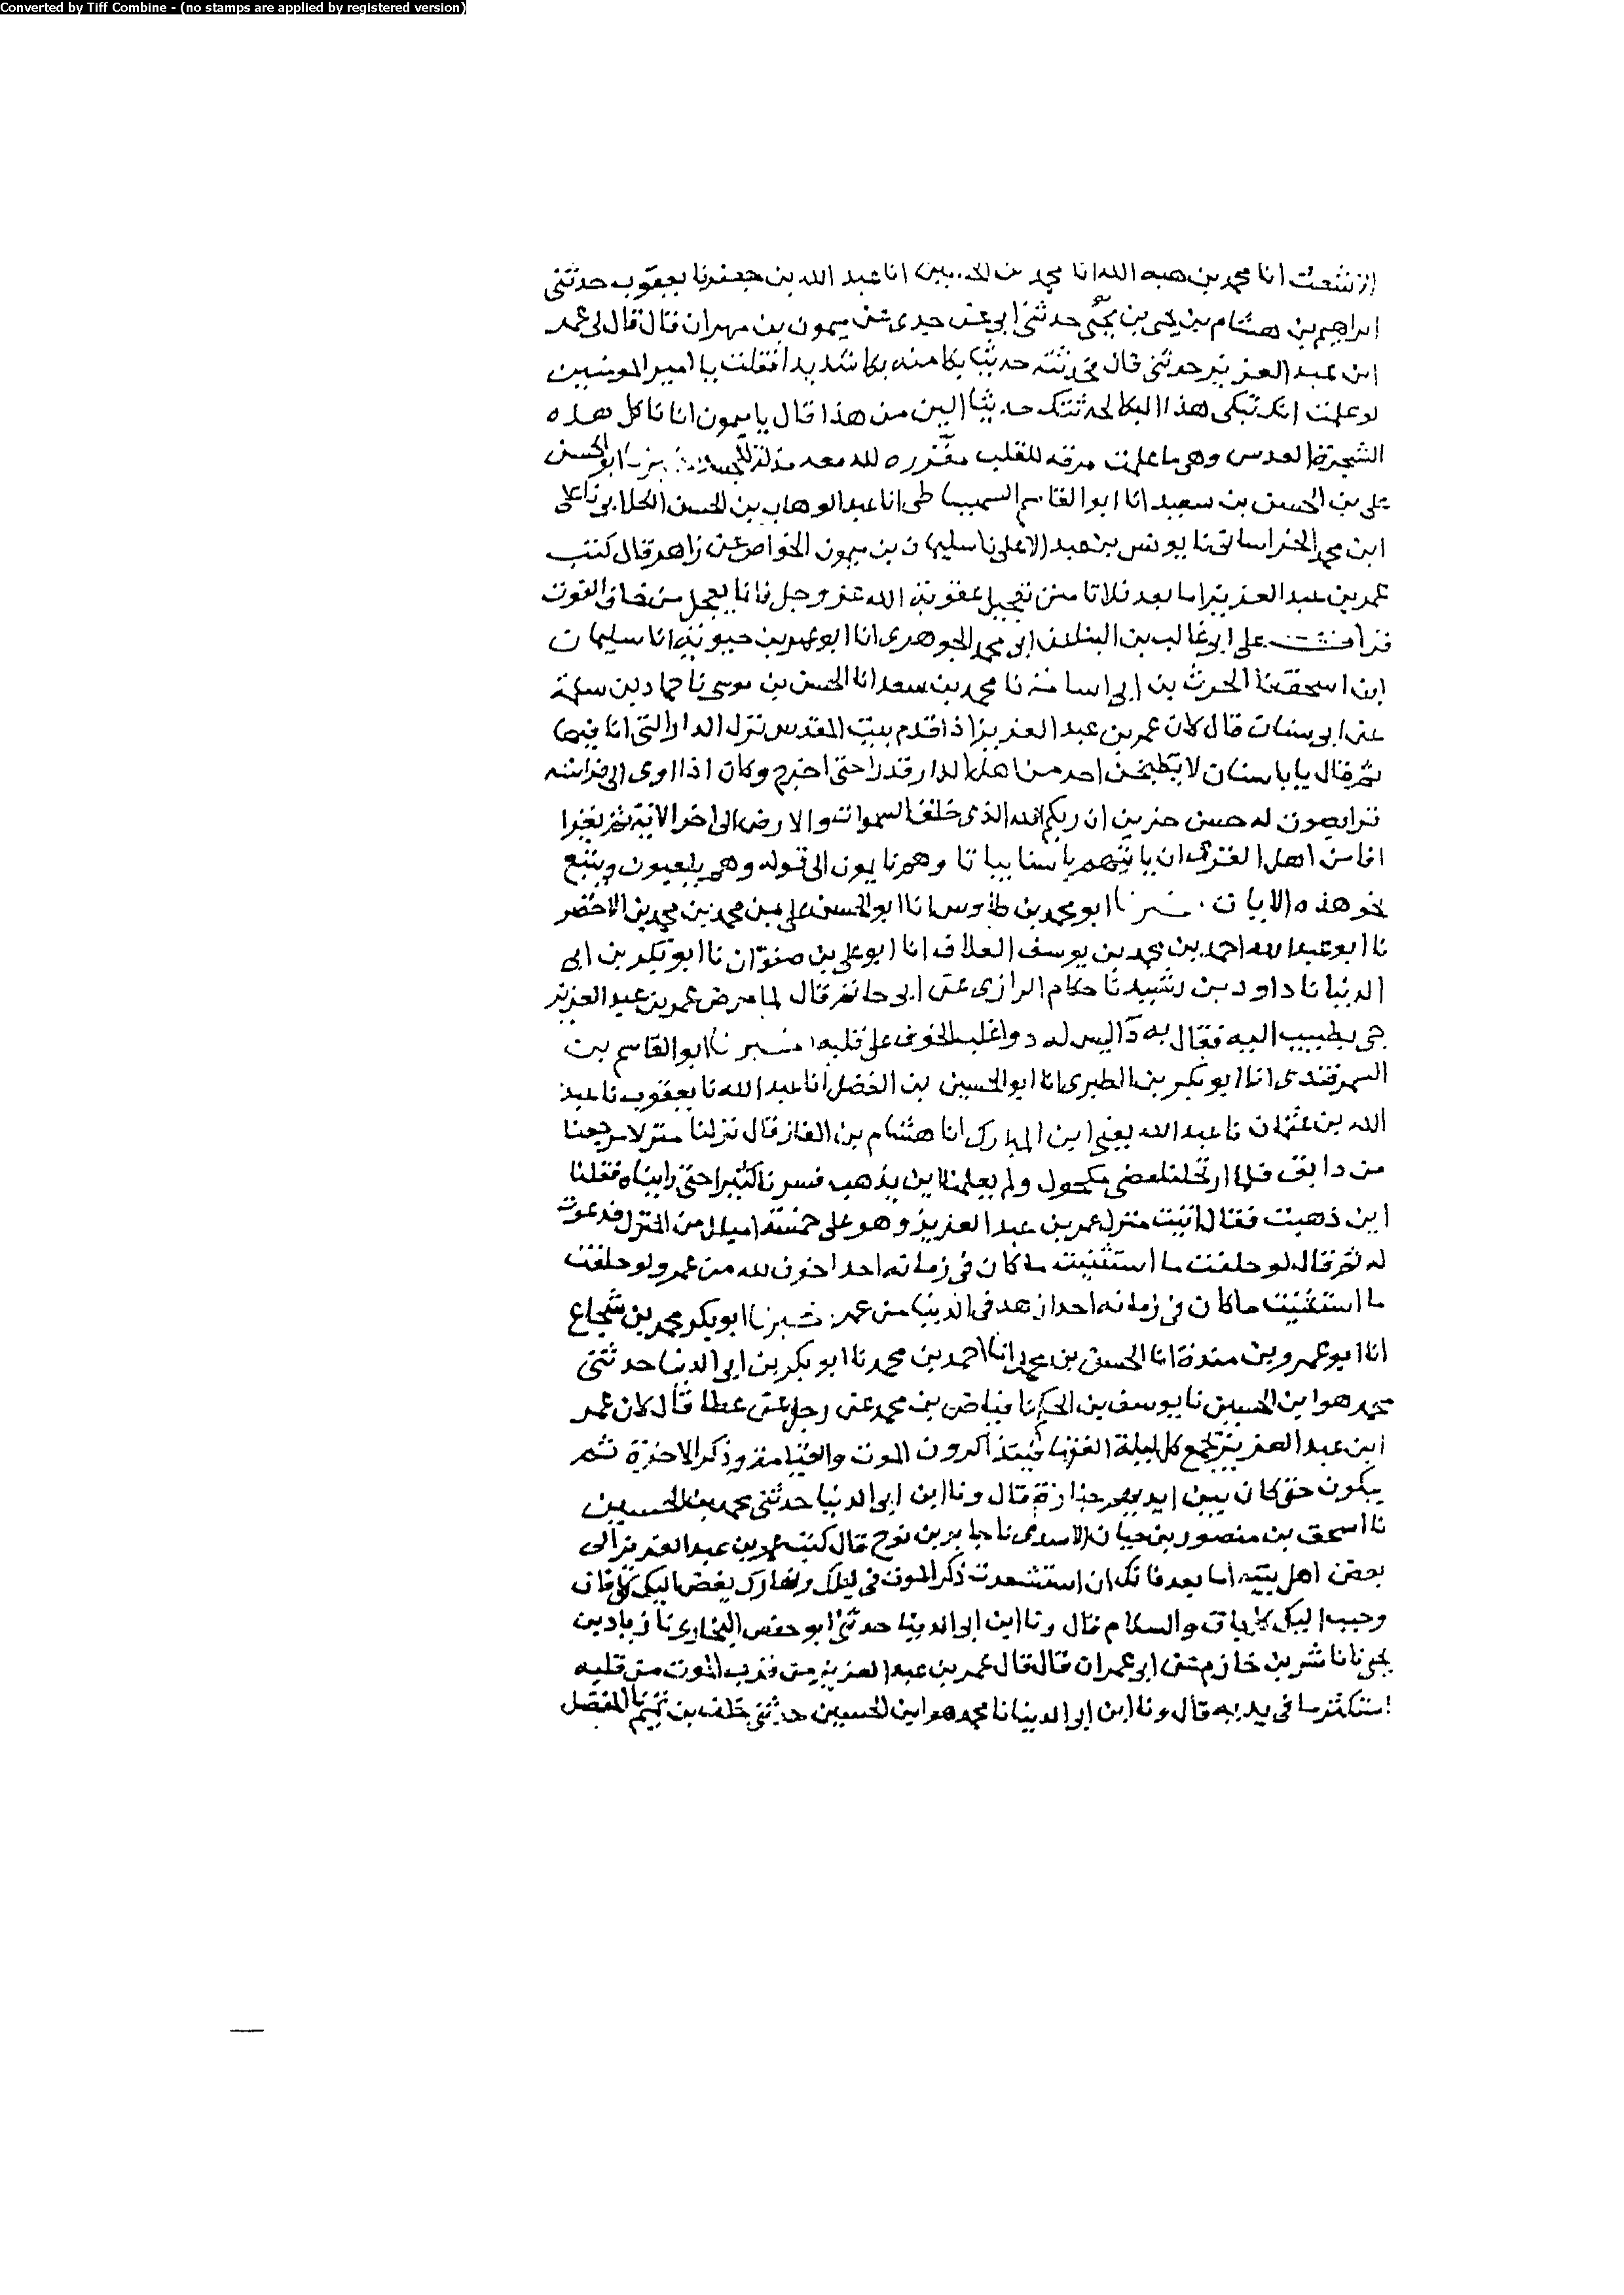 Converted by Tiff Combine - (no stamps are applied by registered version)
انا محمد بن هبه الله انا محمد بن الحسين انا عبد الله بن جعفر نا يعقوب حدثني
ابراهيم بن هشام بن يحيى بن يحيى حدثني ابي عن جدي عن ميمون بن مهران قال قال لي عمر
ابن عبد العزيز حدثني قال فحدثته حديثا بكا منه بكا شديدا فقلت يا امير المومنين
لو علمت انك تبكي هذا البكا لحدثتك حديثا الين من هذا قال يا ميمون انا ناكل هذه
الشجرة العدس وهي ما علمت مرقه للقلب مغزره للدمعه مذله للجسد ابو الحسن
علي بن الحسن بن سعيد انا ابو القاسم السميساطي انا عبد الوهاب بن الحسن الكلابي نا علي
ابن محمد الخراساني نا يونس بن عبد الاعلى نا سليمان بن ميمون الخواص عن زاهر قال كتب
عمر بن عبد العزيز اما بعد فلا تامنن تعجيل عقوبة الله عز وجل فانما يعجل من خاف الفوت
قرات على ابي غالب بن البنا عن ابي محمد الجوهري انا ابو عمر بن حيويه انا سليمان
ابن اسحق نا الحرث بن ابي اسامة نا محمد بن سعد انا الحسن بن موسى نا حماد بن سلمة
عن ابي سنان قال كان عمر بن عبد العزيز اذا قدم بيت المقدس نزل الدار التي انا فيها
ثم قال يا با سنان لا يطبخن احد من اهل الدار قدرا حتى اخرج وكان اذا اوى الى فراشه
قرا بصوت له حسن حزين ان ربكم الله الذي خلق السموات والارض الى اخر الاية ثم يقرا
افامن اهل القرى ان ياتيهم باسنا بياتا وهم نايمون الى قوله وهم يلعبون ويتبع
نحو هذه الايات ابو محمد بن طاوس انا ابو الحسن علي بن محمد بن محمد بن الاخضر
نا ابو عبد الله احمد بن محمد بن يوسف العلاف انا ابو علي بن صفوان نا ابو بكر بن ابي
الدنيا نا داود بن رشيد نا حكام الرازي عن ابي حاتم قال لما مرض عمر بن عبد العزيز
جي بطبيب اليه فقال به دا ليس له دوا غلب الخوف على قلبه نا ابو القاسم بن
السمرقندي انا ابو بكر بن الطبري انا ابو الحسين بن الفضل انا عبد الله نا يعقوب نا عبد
الله بن عثمان نا عبد الله يعني ابن المبارك انا هشام بن الغاز قال نزلنا منزلا مرجعنا
من دابق فلما ارتحلنا مضى مكحول ولم يعلمنا اين يذهب فسرنا كثيرا حتى رايناه فقلنا
اين ذهبت فقال اتيت منزل عمر بن عبد العزيز وهو على خمسة اميال من المنزل فدعوت
له ثم قال لو حلفت ما استثنيت ما كان في زمانه احد اخوف لله من عمر ولو حلفت
ما استثنيت ما كان في زمانه احد ازهد في الدنيا من عمر نا ابو بكر محمد بن شجاع
انا ابو عمرو بن مندة انا الحسن بن محمد انا احمد بن محمد نا ابو بكر بن ابي الدنيا حدثني
محمد هو ابن الحسين نا يوسف بن الحكم نا فياض بن محمد عن رجل عن عطا قال كان عمر
ابن عبد العزيز يجمع كل ليلة الفقها فيتذاكرون الموت والقيامة وذكر الاخرة ثم
يبكون حتى كان بين ايديهم جنازة قال ونا ابن ابي الدنيا حدثني محمد بن الحسين
نا اسحق بن منصور بن حيان الاسدي نا جابر بن نوح قال كتب عمر بن عبد العزيز الى
بعض اهل بيته اما بعد فانك ان استشعرت ذكر الموت في ليلك ونهارك بغض اليك كل فان
وحبب اليك كل باق والسلام قال ونا ابن ابي الدنيا حدثني ابو حفص البخاري نا زياد بن
يحيى نا نا بشر بن خازم عن ابي عمران قال قال عمر بن عبد العزيز من قرب الموت من قلبه
استكثر ما في يديه قال ونا ابن ابي الدنيا نا محمد هو ابن الحسين حدثني خلف بن تميم نا المفضل